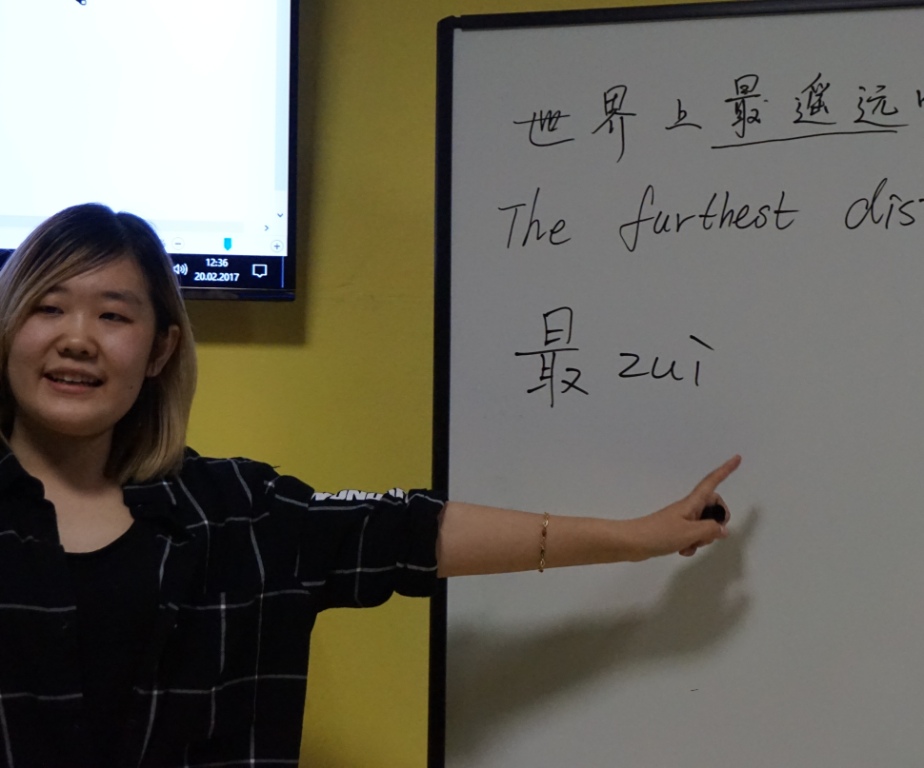 12:36
20.02.2017
世界上最遥远
The furthest dis
最 zuì